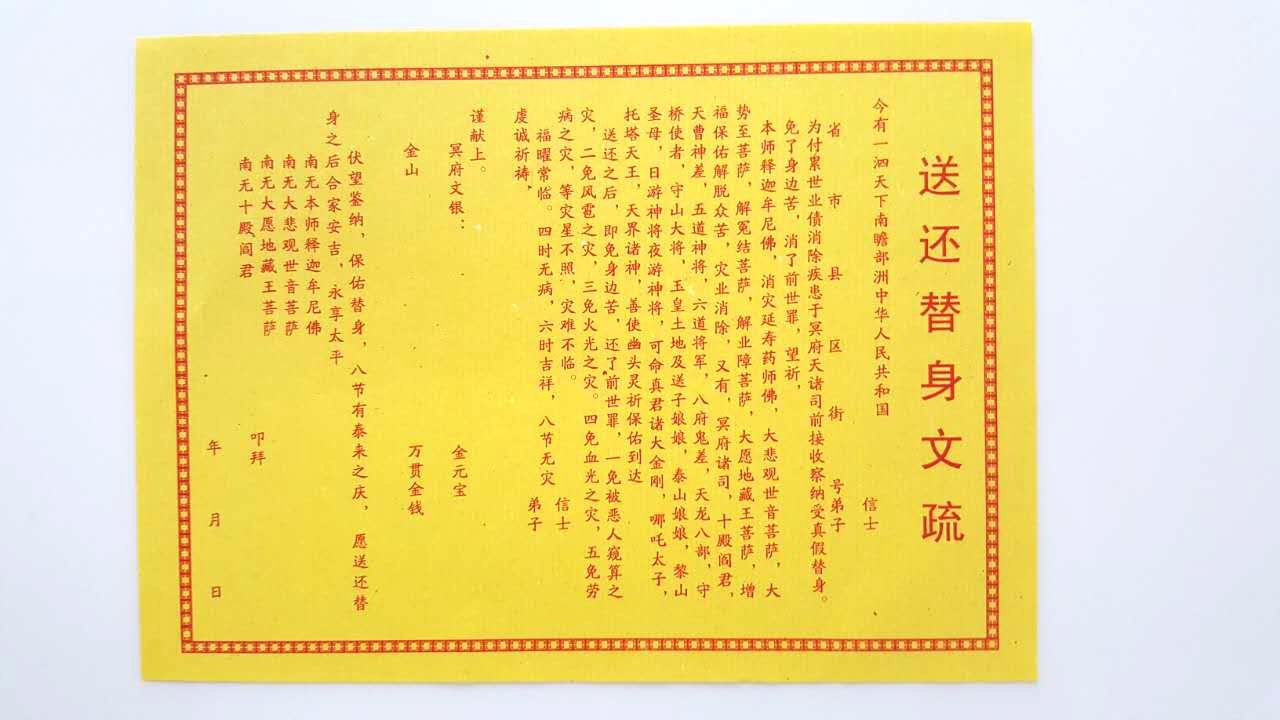 送还替身文疏
今有一泗天下南瞻部洲中华人民共和国 信士
省 市 县 区 街 号弟子
为付累世业债消除疾患于冥府天诸司前接收察纳受真假替身。
免了身边苦，消了前世罪，望祈，
本师释迦牟尼佛，消灾延寿药师佛，大悲观世音菩萨，大
势至菩萨，解冤结菩萨，解业障菩萨，大愿地藏王菩萨，增
福保佑解脱众苦，灾业消除，又有，冥府诸司，十殿阎君，
天曹神差，五道神将，六道将军，八府鬼差，天龙八部，守
桥使者，守山大将，玉皇土地及送子娘娘，泰山娘娘，黎山
圣母，日游神将夜游神将，可命真君诸大金刚，哪吒太子，
托塔天王，天界诸神，善使幽头灵祈保佑到达
送还之后，即免身边苦，还了前世罪，一免被恶人窥算之
灾，二免风雹之灾，三免火光之灾。四免血光之灾，五免劳
病之灾，等灾星不照，灾难不临。 信士
福曜常临。四时无病，六时吉祥，八节无灾 弟子
虔诚祈祷，
谨献上。
冥府文银： 金元宝
金山 万贯金钱
伏望鉴纳，保佑替身，八节有泰来之庆，愿送还替
身之后合家安吉，永享太平
南无本师释迦牟尼佛
南无大悲观世音菩萨
南无大愿地藏王菩萨
南无十殿阎君 叩拜
年 月 日